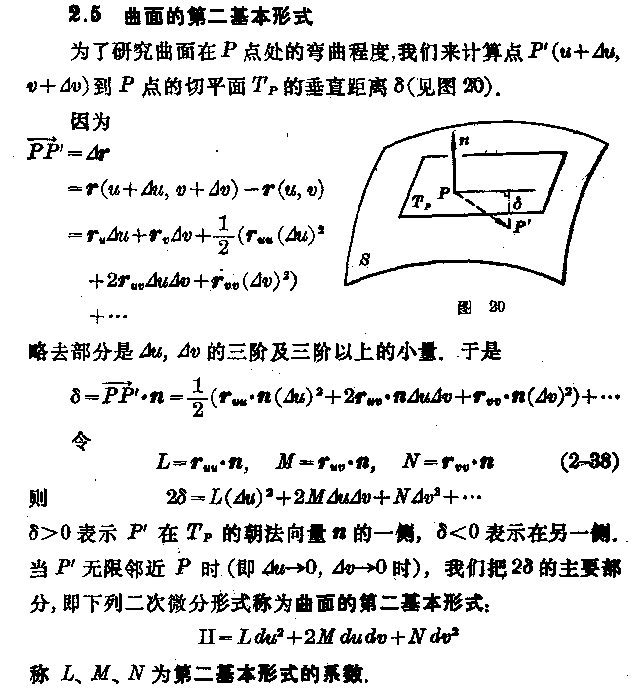 2.5 曲面的第二基本形式
为了研究曲面在 P 点处的弯曲程度,我们来计算点 P′(u+Δu,
v+Δv)到 P 点的切平面 T_P 的垂直距离 δ(见图 20).
因为
PP′=Δr
=r(u+Δu, v+Δv)-r(u, v)
=r_uΔu+r_vΔv+1/2(r_uu(Δu)²
+2r_uvΔuΔv+r_vv(Δv)²)
+⋯
n
T_P
P
δ
P′
S
图 20
略去部分是 Δu, Δv 的三阶及三阶以上的小量. 于是
δ=PP′·n=1/2(r_uu·n(Δu)²+2r_uv·nΔuΔv+r_vv·n(Δv)²)+⋯
令
L=r_uu·n, M=r_uv·n, N=r_vv·n (2-38)
则 2δ=L(Δu)²+2MΔuΔv+NΔv²+⋯
δ>0 表示 P′ 在 T_P 的朝法向量 n 的一侧, δ<0 表示在另一侧.
当 P′ 无限邻近 P 时(即 Δu→0, Δv→0 时), 我们把 2δ 的主要部
分, 即下列二次微分形式称为曲面的第二基本形式:
II=L du²+2M du dv+N dv²
称 L、M、N 为第二基本形式的系数.